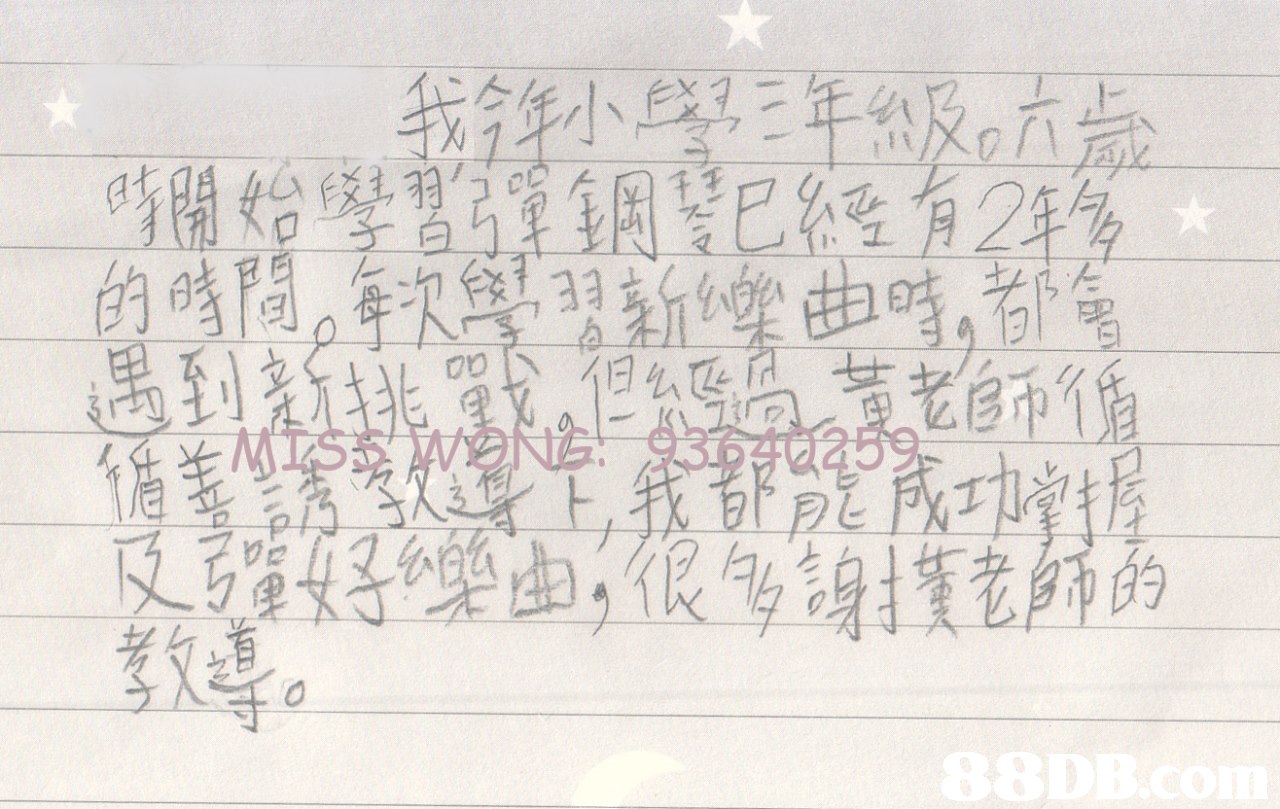 我今年小學三年級。六歲
時開始學習彈鋼琴已經有2年多
的時間。每次學習新樂曲時,都會
遇到新挑戰。但經過黃老師循
MISS WONG: 93640259
循善誘教導下,我都能成功掌握
及彈好樂曲,很多謝黃老師的
教導。
88DB.com